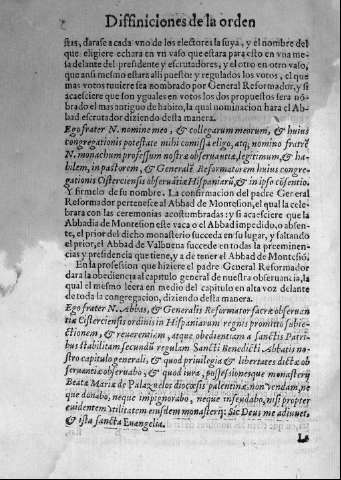 Diffiniciones de la orden
stas, darase a cada vno de los electores la suya, y el nombre del
que eligiere echara en vn vaso que estara para esto en vna me-
sa delante del presidente y escrutadores, y el otro en otro vaso,
que ansi mesmo estara alli puesto: y regulados los votos, el que
mas votos tuuiere sea nombrado por General Reformador, y si
acaesciere que son yguales en votos los dos propuestos sera nō
brado el mas antiguo de habito, la qual nominacion hara el Ab-
bad escrutador diziendo desta manera.
Ego frater N. nomine meo, & collegarum meorum, & huius
congregationis potestate mihi comissa eligo, atq; nomino fratrē
N. monachum professum nostræ obseruantiæ, legitimum, & ha-
bilem, in pastorem, & Generalē Reformatorem huius congre-
gationis Cisterciensis obseruātiæ Hispaniarū, & in ipso cōsentio.
Y firmelo de su nombre. La confirmacion del padre General
Reformador pertenesce al Abbad de Montesion, el qual la cele-
brara con las ceremonias acostumbradas: y si acaesciere que la
Abbadia de Montesion este vaca o el Abbad impedido, o absen-
te, el prior del dicho monasterio succeda en su lugar, y faltando
el prior, el Abbad de Valbuena succede en todas la preeminen-
cias y presidencia que tiene, y a de tener el Abbad de Montesiō.
En la profesion que hiziere el padre General Reformador
dara la obediencia al capitulo general de nuestra obseruancia, la
qual el mesmo leera en medio del capitulo en alta voz delante
de toda la congregacion, diziendo desta manera.
Ego frater N. Abbas, & Generalis Reformator sacræ obseruan
tiæ Cisterciensis ordinis in Hispaniarum regnis promitto subie-
ctionem, & reuerentiam, atque obedientiam a sanctis Patri-
bus stabilitam secundū regulam Sancti Benedicti Abbatis no-
stro capitulo generali, & quod priuilegia & libertates dictæ ob
seruantiæ obseruabo, & quod iura, possessionesque monasterij
Beatæ Mariæ de Palaz nelos diocœsis palentinæ non vendam, ne
que donabo, neque impignorabo, neque infeudabo, nisi propter
euidentem vtilitatem eiusdem monasterij: Sic Deus me adiuuet,
& ista sancta Euangelia.